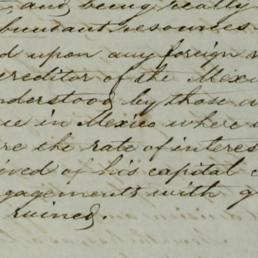 and being really
abundant resources
upon any foreign
creditor of the Mexi
nderstood by those
ue in Mexico where
re the rate of interes
ived of his capital
gagements with g
ruined.